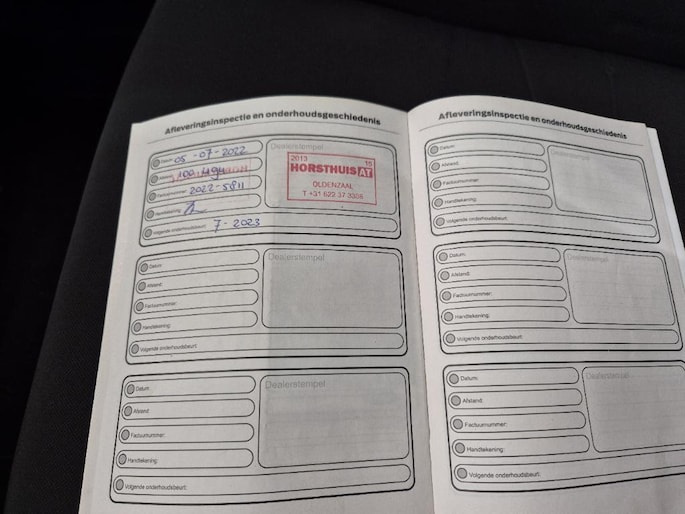 Afleveringsinspectie en onderhoudsgeschiedenis
Datum: 05-07-2022
Afstand:
Factuurnummer: 2022-5811
Handtekening:
Volgende onderhoudsbeurt: 7-2023
Dealerstempel
2013 15
HORSTHUIS AT
OLDENZAAL
Datum:
Afstand:
Factuurnummer:
Handtekening:
Volgende onderhoudsbeurt:
Dealerstempel
Datum:
Afstand:
Factuurnummer:
Handtekening:
Volgende onderhoudsbeurt:
Dealerstempel
Afleveringsinspectie en onderhoudsgeschiedenis
Datum:
Afstand:
Factuurnummer:
Handtekening:
Volgende onderhoudsbeurt:
Dealerstempel
Datum:
Afstand:
Factuurnummer:
Handtekening:
Volgende onderhoudsbeurt:
Dealerstempel
Datum:
Afstand:
Factuurnummer:
Handtekening:
Volgende onderhoudsbeurt:
Dealerstempel